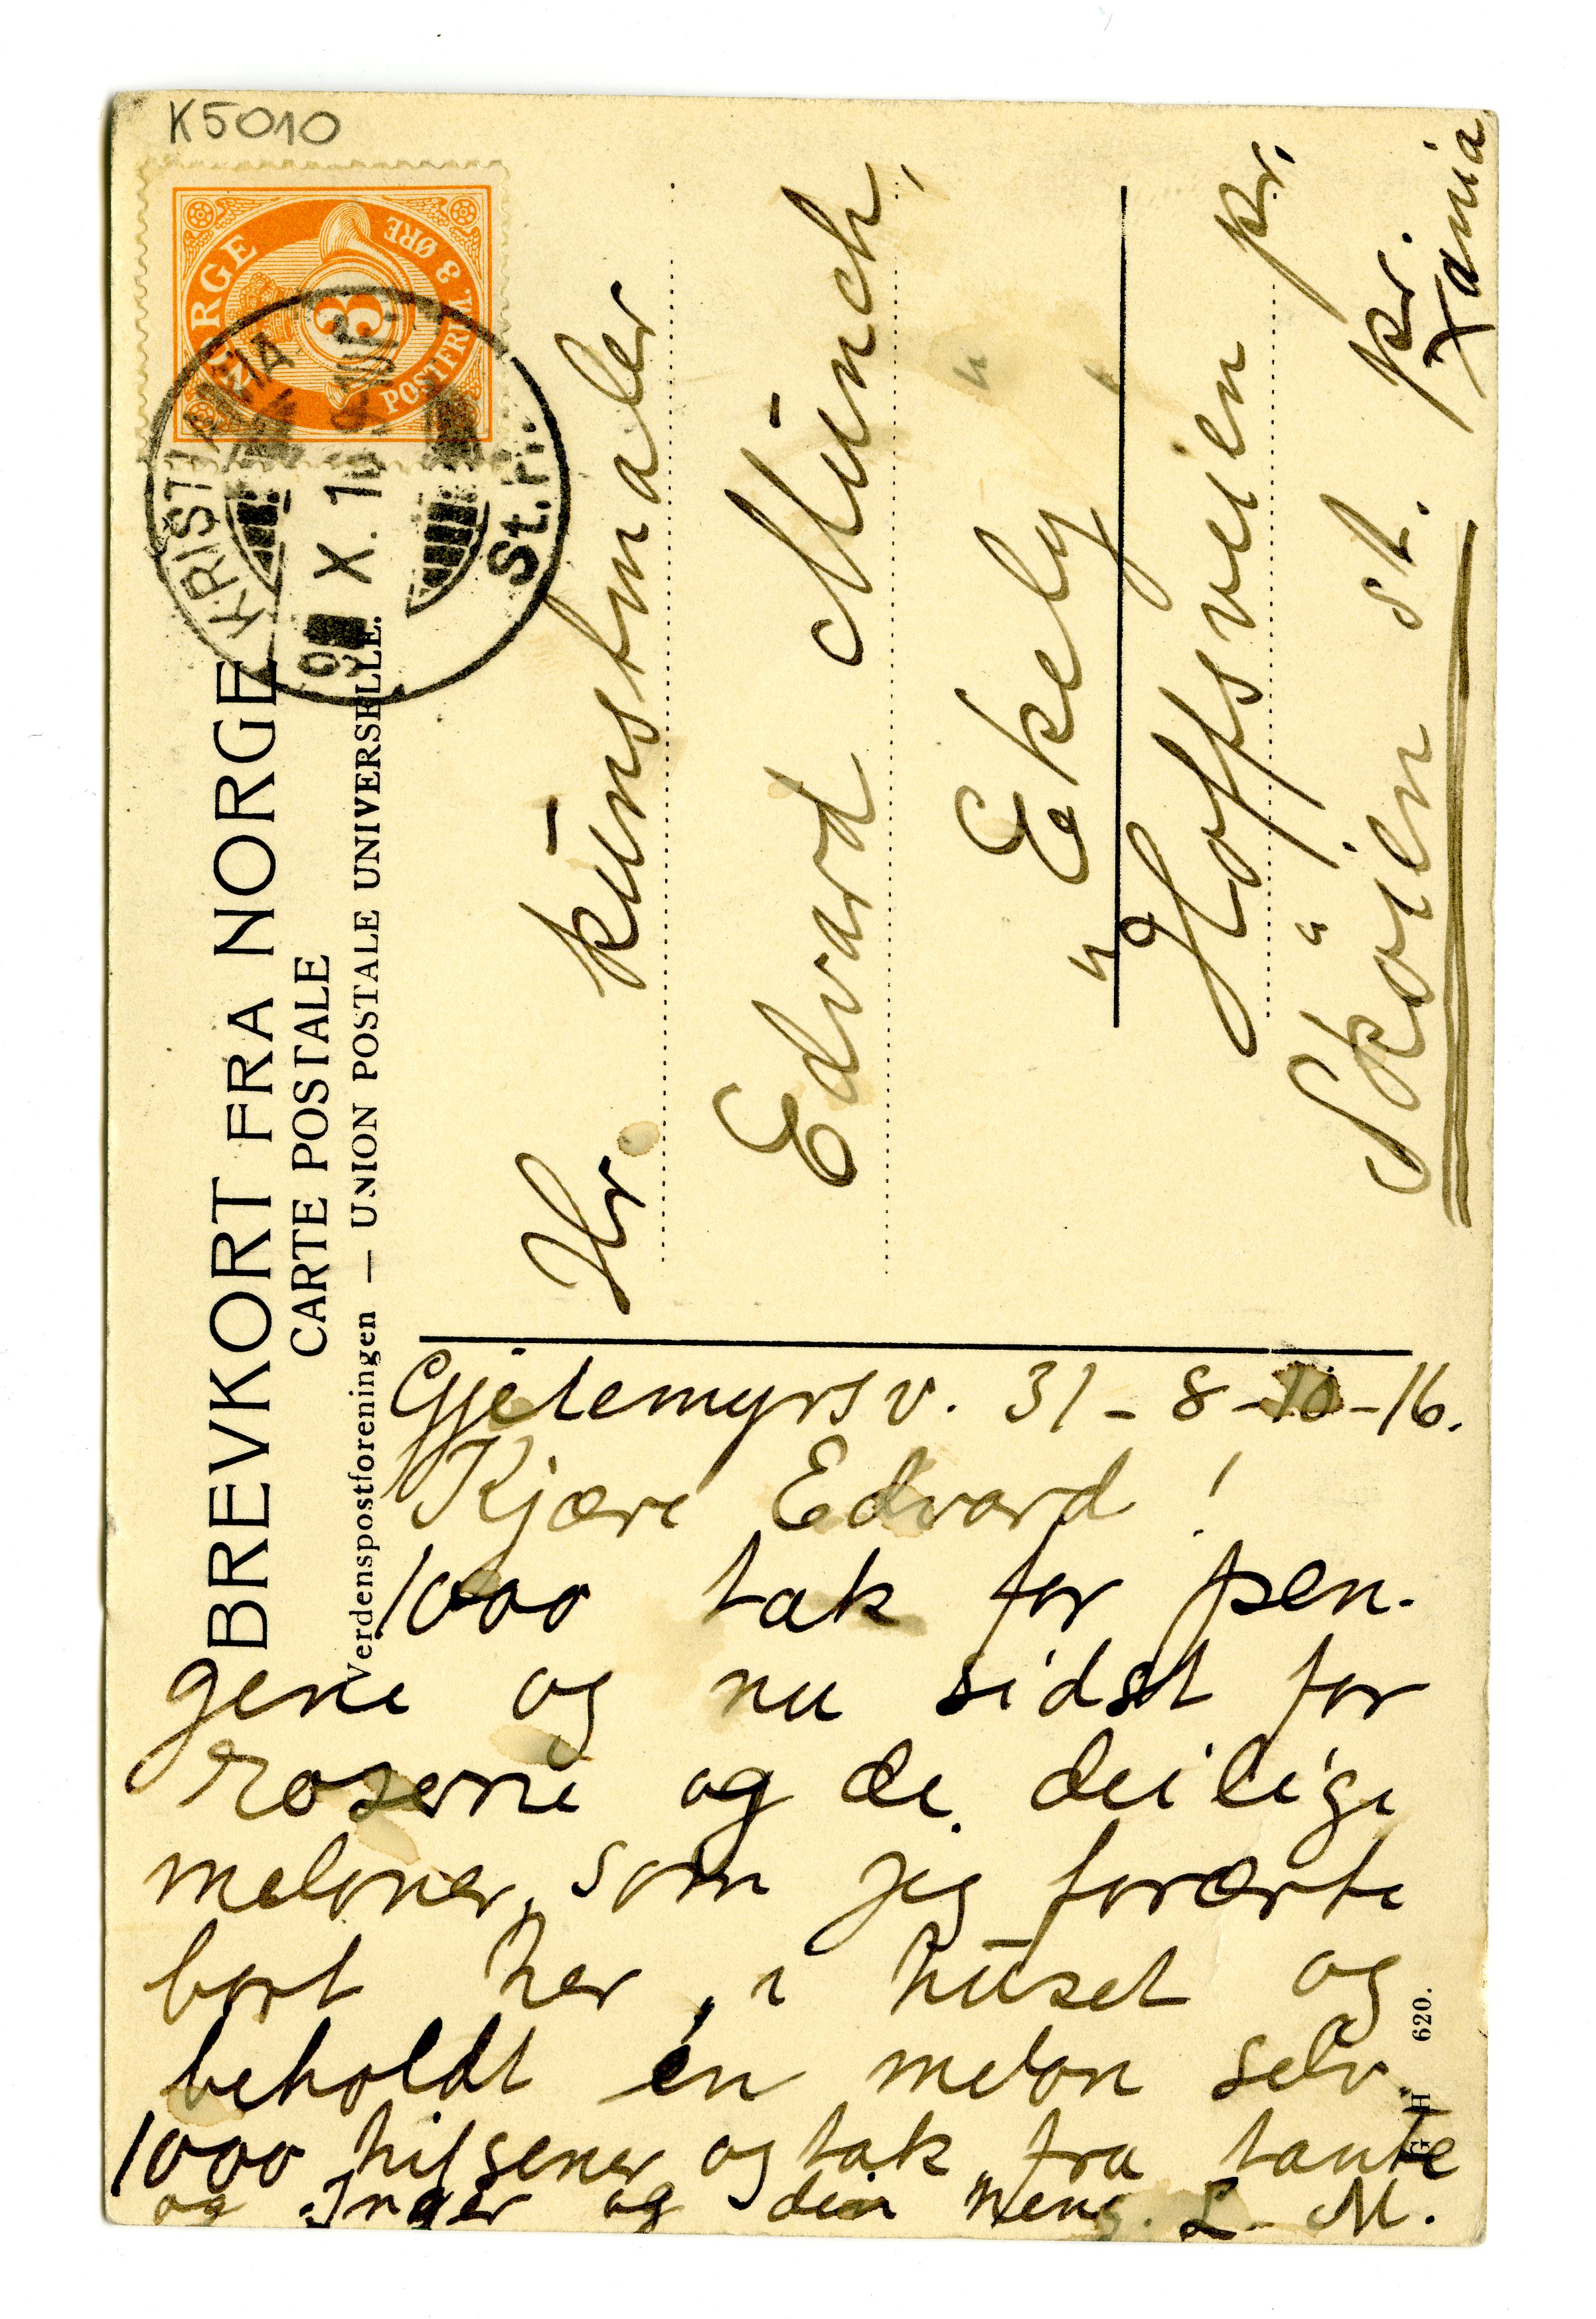 K5010
NORGE
3
POSTFRIM. 3 ØRE
KRISTIANIA
X. 16
St.
BREVKORT FRA NORGE
CARTE POSTALE
Verdenspostforeningen — UNION POSTALE UNIVERSELLE.
Hr. kunstmaler
Edvard Munch,
" Ekely "
Hoffsveien pr.
Skøien st. pr.
Xania
Gjetemyrsv. 31 - 8-10-16.
Kjære Edvard!
1000 tak for pen-
gene og nu sidst for
roserne og de deilige
meloner, som jeg forærte
bort her i huset og
beholdt én melon selv.
1000 hilsener og tak fra tante
og Inger og din heng. L. M.
620.